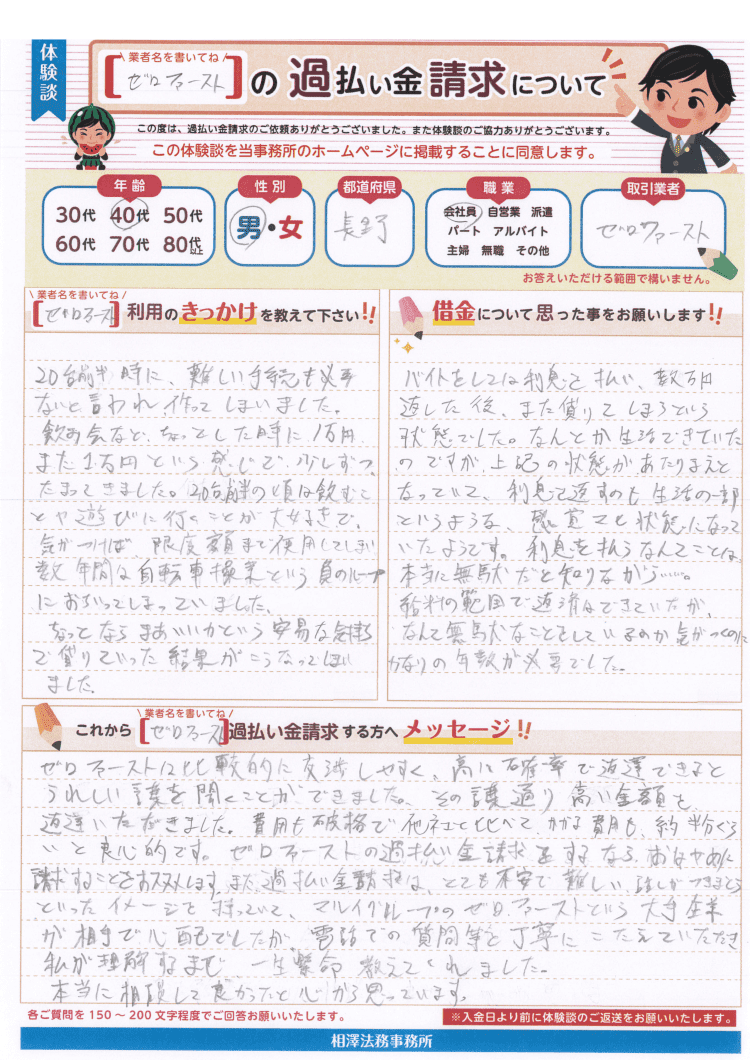 体験談
\ 業者名を書いてね /
[ゼロファースト]の過払い金請求について
この度は、過払い金請求のご依頼ありがとうございました。また体験談のご協力ありがとうございます。
この体験談を当事務所のホームページに掲載することに同意します。
年齢
30代 40代 50代
60代 70代 80代以上
性別
男・女
都道府県
長野
職業
会社員 自営業 派遣
パート アルバイト
主婦 無職 その他
取引業者
ゼロファースト
お答えいただける範囲で構いません。
\ 業者名を書いてね /
[ゼロファースト]利用のきっかけを教えて下さい!!
20台前半時に、難しい手続も必要
ないと言われ、作ってしまいました。
飲み会など、ちょっとした時に1万円、
また1万円という感じで少しずつ、
たまってきました。20台前半の頃は飲むこ
とや遊びに行くことが大好きで、
気がつけば限度額まで使用してしまい
数年間は自転車操業という負のループ
におちいってしまっていました。
ちょっとならまあいいかという安易な気持ち
で借りていった結果がこうなってしまい
ました。
借金について思った事をお願いします!!
バイトをしては利息を払い、数万円
返した後、また借りてしまうという
状態でした。なんとか生活できていた
のですが、上記の状態があたりまえと
なっていて、利息を返すのも生活の一部
というような、感覚マヒ状態になって
いたようです。利息を払うなんてことは、
本当に無駄だと知りながら……。
給料の範囲で返済はできていたが、
なんて無駄なことをしているのか気がつくのに
かなりの年数が必要でした。
\ 業者名を書いてね /
これから[ゼロファースト]過払い金請求する方へメッセージ!!
ゼロファーストは比較的に交渉しやすく、高い確率で返還できると
うれしい話を聞くことができました。その話通り高い金額を
返還いただきました。費用も破格で他社と比べて、かかる費用も、約半分くら
いと良心的です。ゼロファーストの過払い金請求をするなら、おはやめに
請求することをおススメします。また、過払い金請求は、とても不安で難しい話しがつきまとう
といったイメージを持っていて、マルイグループのゼロファーストという大手企業
が相手で心配でしたが、電話での質問等を丁寧にこたえていただき
私が理解するまで一生懸命教えてくれました。
本当に相談して良かったと心から思っています。
各ご質問を150～200文字程度でご回答お願いいたします。
※入金日より前に体験談のご返送をお願いいたします。
相澤法務事務所